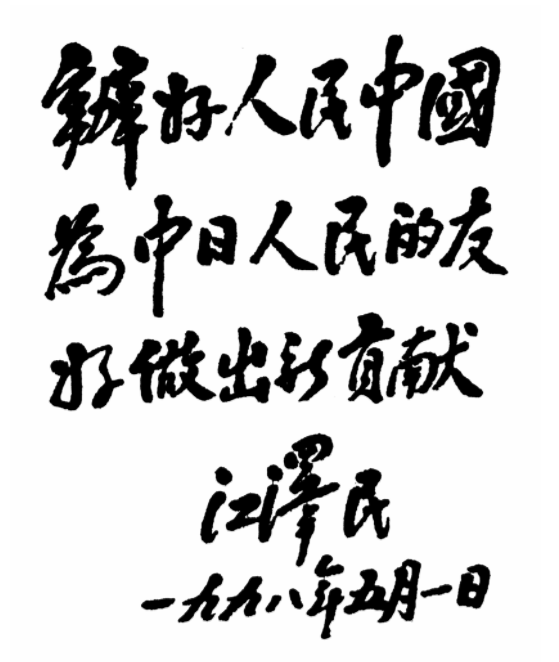 辦好人民中國
為中日人民的友
好做出新貢献
江澤民
一九九八年五月一日